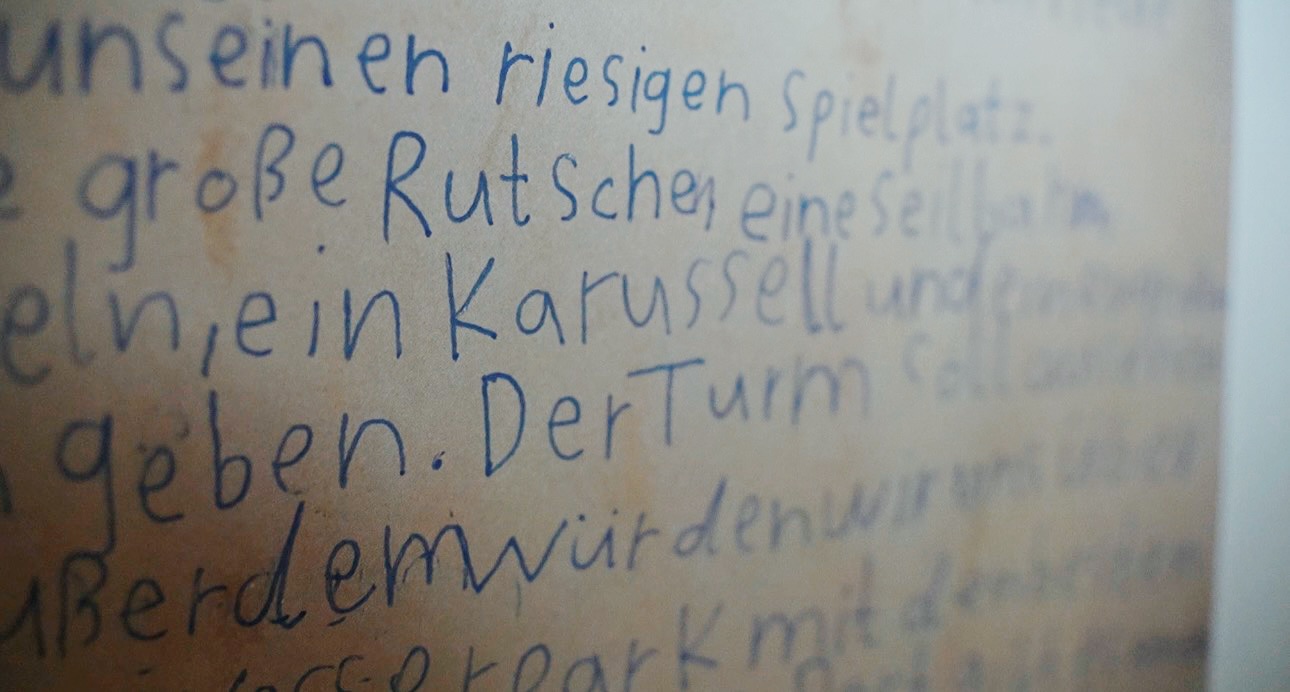 uns einen riesigen Spielplatz.
e große Rutsche, eine Seilbahn
eln, ein Karussell und
geben. Der Turm soll
ußerdem würden wir uns über
serpark mit